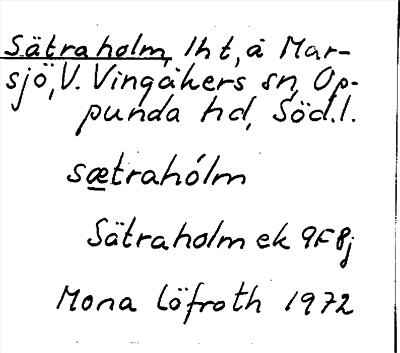 Sätraholm, lht, å Mar-
sjö, V. Vingåkers sn, Op-
punda hd, Söd.l.
sætrahólm
Sätraholm ek 9F8j
Mona Löfroth 1972